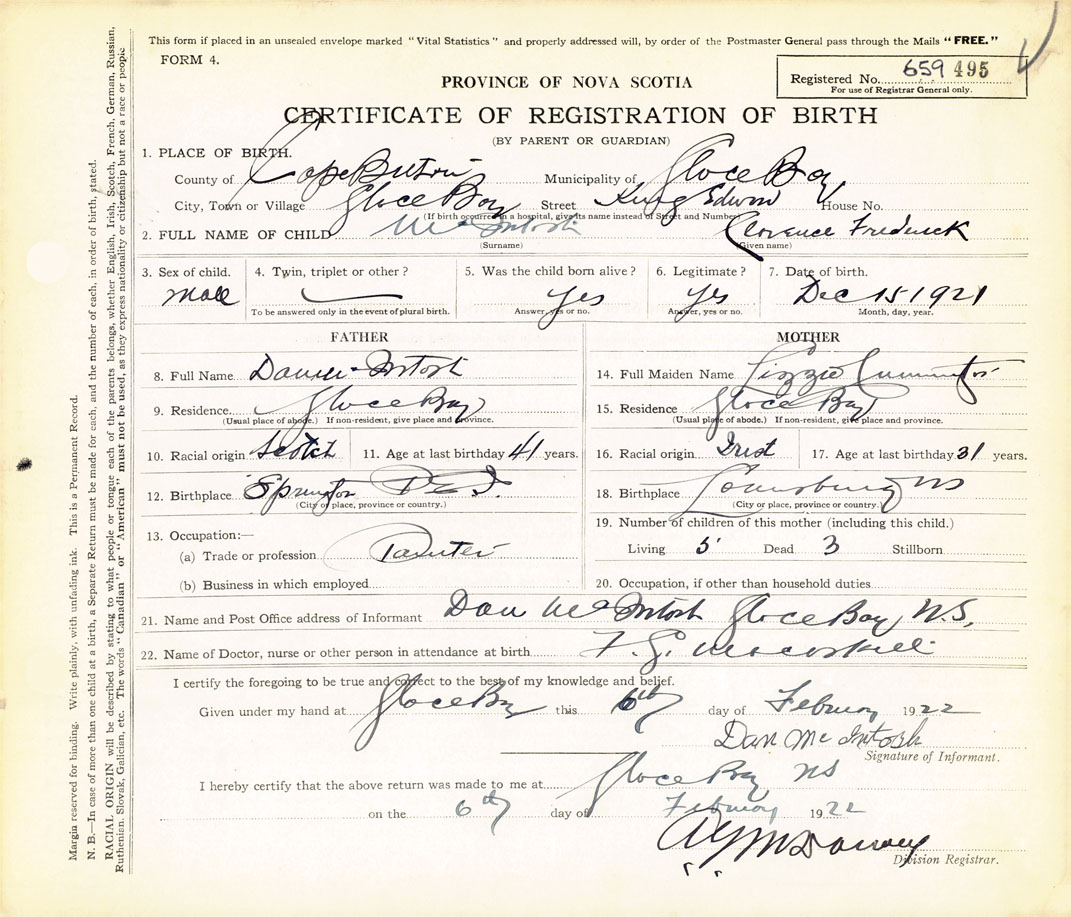 This form if placed in an unsealed envelope marked "Vital Statistics" and properly addressed will, by order of the Postmaster General pass through the Mails "FREE."
FORM 4.
Registered No. 659 495
For use of Registrar General only.
PROVINCE OF NOVA SCOTIA
CERTIFICATE OF REGISTRATION OF BIRTH
(BY PARENT OR GUARDIAN)
1. PLACE OF BIRTH.
County of Cape Breton Municipality of Glace Bay
City, Town or Village Glace Bay Street King Edward House No.
(If birth occurred in a hospital, give its name instead of Street and Number)
2. FULL NAME OF CHILD McIntosh Clarence Frederick
(Surname) (Given name)
3. Sex of child. 4. Twin, triplet or other? 5. Was the child born alive? 6. Legitimate? 7. Date of birth.
male — Yes Yes Dec 15 1921
To be answered only in the event of plural birth. Answer, yes or no. Answer, yes or no. Month, day, year.
FATHER MOTHER
8. Full Name Dan McIntosh
9. Residence Glace Bay
(Usual place of abode.) If non-resident, give place and province.
10. Racial origin Scotch 11. Age at last birthday 41 years.
12. Birthplace P.E.I.
(City or place, province or country.)
13. Occupation:—
(a) Trade or profession Painter
(b) Business in which employed
14. Full Maiden Name Lizzie
15. Residence Glace Bay
(Usual place of abode.) If non-resident, give place and province.
16. Racial origin Irish 17. Age at last birthday 31 years.
18. Birthplace Louisburg NS
(City or place, province or country.)
19. Number of children of this mother (including this child.)
Living 5 Dead 3 Stillborn
20. Occupation, if other than household duties
21. Name and Post Office address of Informant Dan McIntosh Glace Bay, N.S.
22. Name of Doctor, nurse or other person in attendance at birth
I certify the foregoing to be true and correct to the best of my knowledge and belief.
Given under my hand at Glace Bay this 6th day of February 1922
Dan McIntosh
Signature of Informant.
I hereby certify that the above return was made to me at Glace Bay NS
on the 6th day of February 1922
Division Registrar.
Margin reserved for binding. Write plainly, with unfading ink. This is a Permanent Record.
N. B.—In case of more than one child at a birth, a Separate Return must be made for each, and the number of each, in order of birth, stated.
RACIAL ORIGIN will be described by stating to what people or tongue each of the parents belongs, whether English, Irish, Scotch, French, German, Russian,
Ruthenian, Slovak, Galician, etc. The words "Canadian" or "American" must not be used, as they express nationality or citizenship but not a race or people